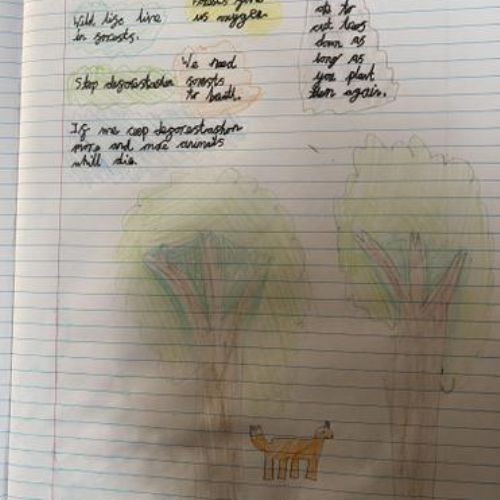 Wild life live
in forests.
us oxygen.
Stop deforestashon
We need
forests
to breath.
ok to
cut trees
down as
long as
you plant
them again.
If we ceep deforestrashon
more and more animals
whill die.